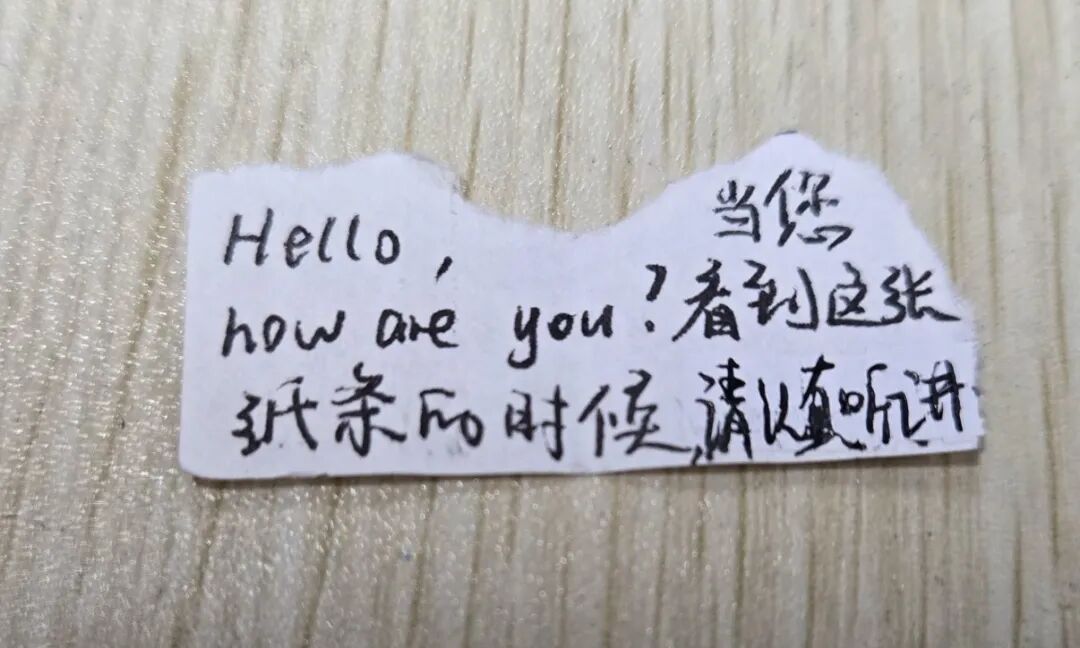 Hello, 当您
how are you? 看到这张
纸条的时候,请认真听讲